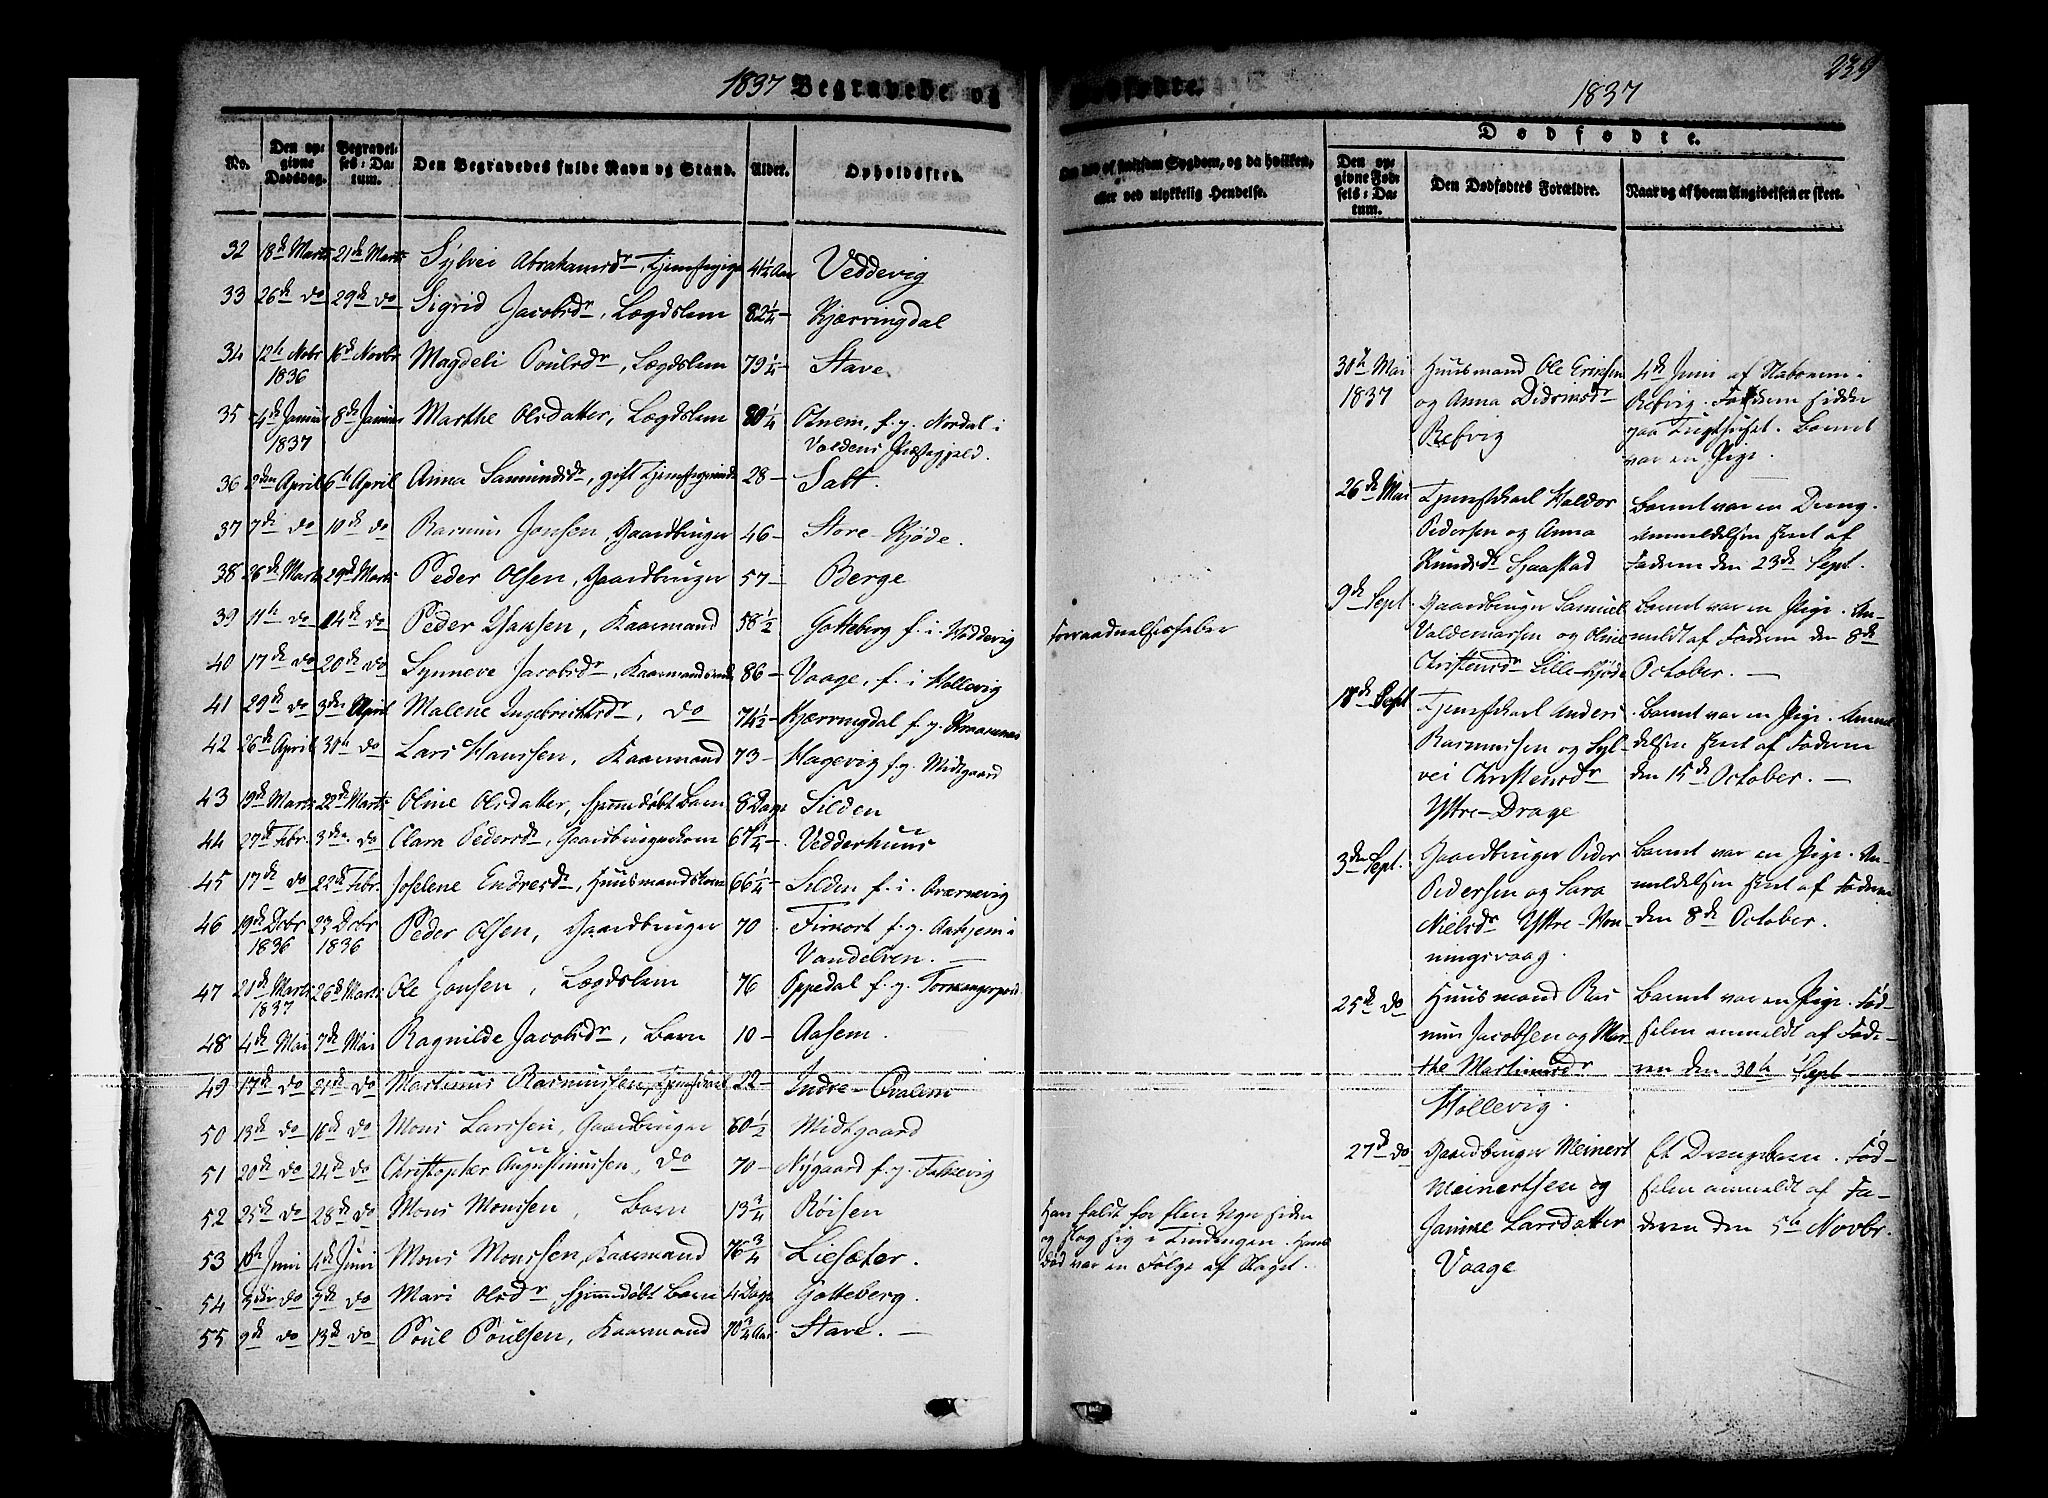 1837 Begravede og
No. Den opgivne Dødsdag. Begravelses-Datum. Den Begravedes fulde Navn og Stand. Alder. Opholdssted.
32 18de Marts 21de Marts Sylvei Abrahamsdr, Tjenestepige 41 1/2 Aar Veddevig
33 26de do 29de do Sigrid Jacobsdr, Lægdslem 82 1/4 - Kjerringdal
34 12te Novbr 1836 16de Novbr Magdeli Poulsdr, Lægdslem 79 1/4 Stave
35 4de Januar 1837 8de Januar Marthe Olsdatter, Lægdslem 80 1/4 Otnem, f. g. Nordal i
Voldens Præstegjeld.
36 2den April 6te April Anna Samundsdr, gift 28 - Salt.
37 7de do 10de do Rasmus Jonsen, Gaardbruger 46 - Store-Kjøde.
38 26de Marts 29de Marts Peder Olsen, Gaardbruger 57 - Berge
39 11te do 14de do Peder Hansen, Kaarmand 58 1/2 Gotteberg f. i. Weddevig
40 17de do 20de do Synneve Jacobsdr, 86 - Vaage, f. i Hollevig
41 29de do 3den April Malene Ingebrichtsdr, do 74 1/2 - Kjerringdal f. g.
42 26de April 30te do Lars Hanssen, Kaarmand 73 - Hagevig f. g. Midtgaard
43 19de Marts 22de Marts Oline Olsdatter, hjemmedøbt Barn 8 Dage Silden
44 27de Febr. 3den do Clara Pedersdr, Gaardbrugerkone 67 1/4 - Vedderhuus
45 17de do 22de Febr. Joselene Endresdr, Huusmandskone 66 1/4 - Silden f. i.
46 19de Decbr 1836 23 Decbr 1836 Peder Olsen, Gaardbruger 70 Firkort f. g. Aahjem i
Vandelven. -
47 21de Marts 1837 26de Marts Ole Jonsen, Lægdslem 76 Oppedal f. g.
48 4de Mai 7de Mai Ragnilde Jacobsdr, Barn 10 - Aasem.
49 17de do 21de do Martinus Rasmussen, Tjenestkarl 22 - Indre-Qvalem
50 13de do 16de do Mons Larssen, Gaardbruger 60 1/2 Midtgaard
51 20de do 24de do Christopher Augustinussen, do 70 - Nygaard f. g.
52 25de do 28de do Mons Monssen, Barn 13 3/4 Røisen
53 Juni 4de Juni Mons Monssen, Kaarmand 76 3/4 Liesæter.
54 do do Mari Olsdr hjemmedøbt Barn 4 Dage Gotteberg.
55 9de do 13de do Poul Poulsen, Kaarmand 70 3/4 Aar. Stave. -
Dødfødte. 1837 239
Om død af smitsom Sygdom, og da hvilken, eller ved ulykkelig Hendelse.
Forraadnelsesfeber
Han faldt for flere Uger siden
og slog sig i Tindingen. Hans
Død var en Følge af Slaget.
Dødfødte.
Den opgivne Fødsels-Datum. Den Dødfødtes Forældre. Naar og af hvem Angivelsen er skeet.
30te Mai Huusmand Ole Ericksen 4de Juni af Naboerne i
1837 og Anna Didriksdr Refvig. Faderen sidder
Refvig paa Tugthuset. Barnet
var en Pige.
26de Mai Tjenestkarl Haldor Barnet var en Dreng.
Pedersen og Anna Anmeldelsen skeet af
Knudsdr Sjaastad Faderen den 23de Sept.
9de Sept. Gaardbruger Samuel Barnet var en Pige. An-
Valdemarsen og Oline meldt af Faderen den 8de
Christensdr Lille-Kjøde October. -
18de Sept Tjenestkarl Anders Barnet var en Pige. Anmel
Rasmussen og Syl- delsen skeet af Faderen
vei Christensdr den 15de October. -
Ystre-Drage
3den Sept. Gaardbruger Peder Barnet var en Pige. An-
Pedersen og Sara meldelsen skeet af Faderen
Nielsdr Ystre-Hon- den 8de October.
ningsvaag.
25de do Huusmand Ras Barnet var en Pige. Fød-
mus Jacobsen og Mar- selen anmeldt af Fade-
the Martinusdr ren den 30te Sept -
Hollevig.
27de do Gaardbruger Meinert Et Drengebarn. Fød-
Meinertsen og selen anmeldt af Fa-
Janne Larsdatter deren den 5te Novbr.
Vaage